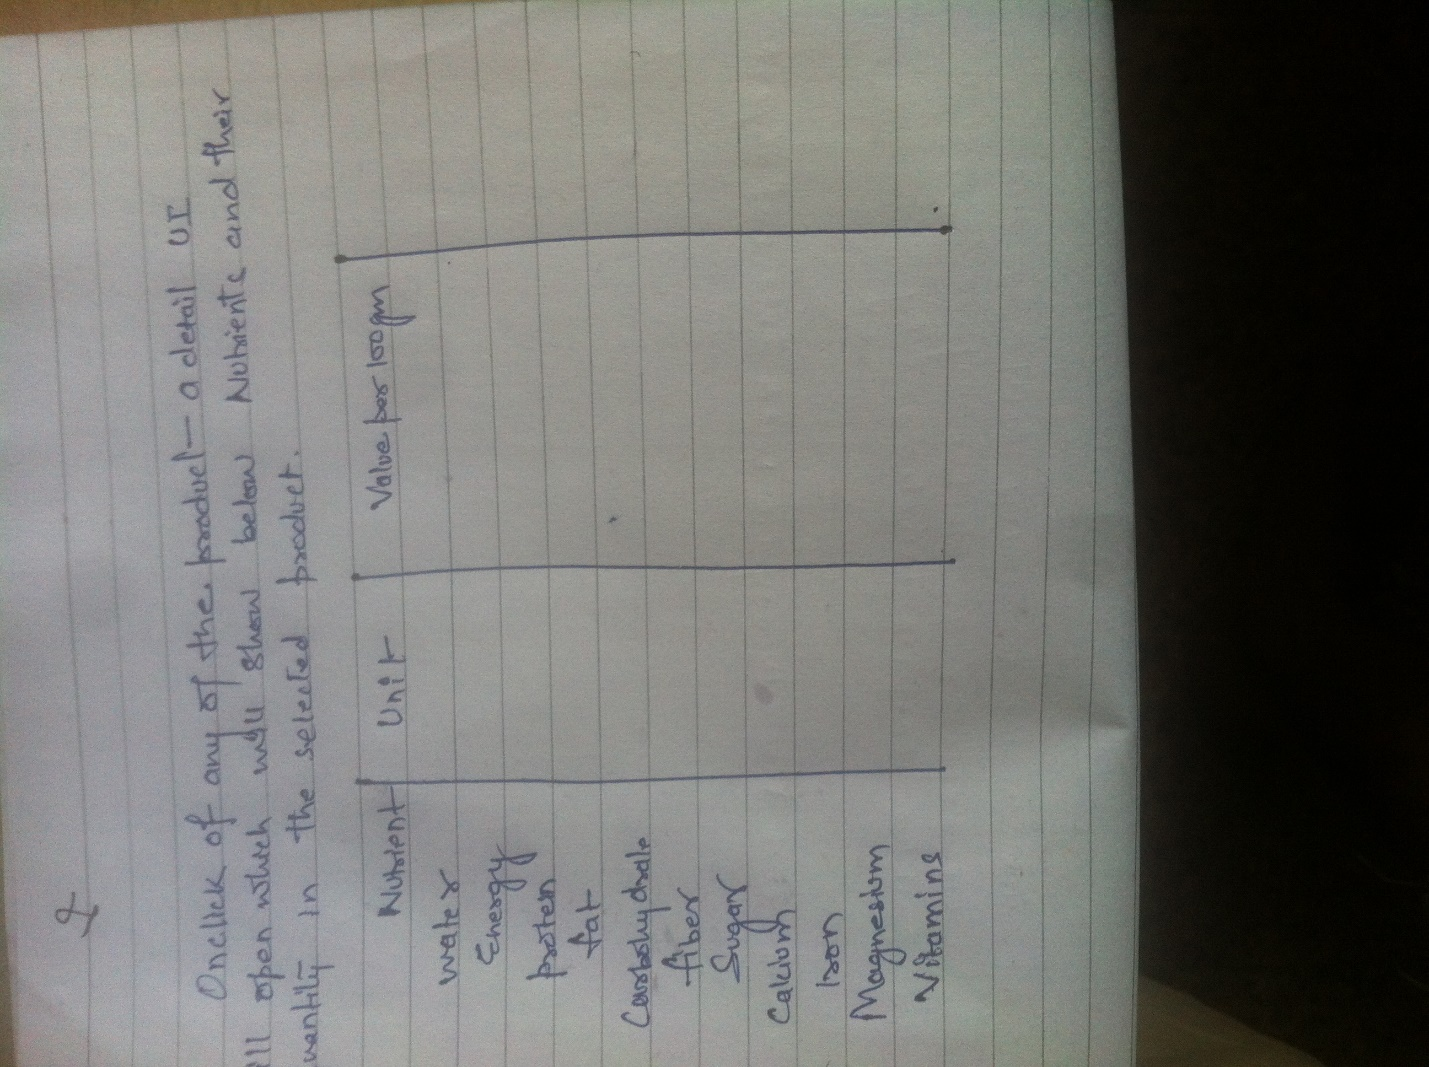 2
Onclick of any of the product — a detail UI
ill open which will show below Nutrients and their
uantity in the selected product.
Nutrient Unit Value per 100gm
Water
Energy
protein
fat
Carbohydrate
fiber
Sugar
Calcium
Iron
Magnesium
Vitamins